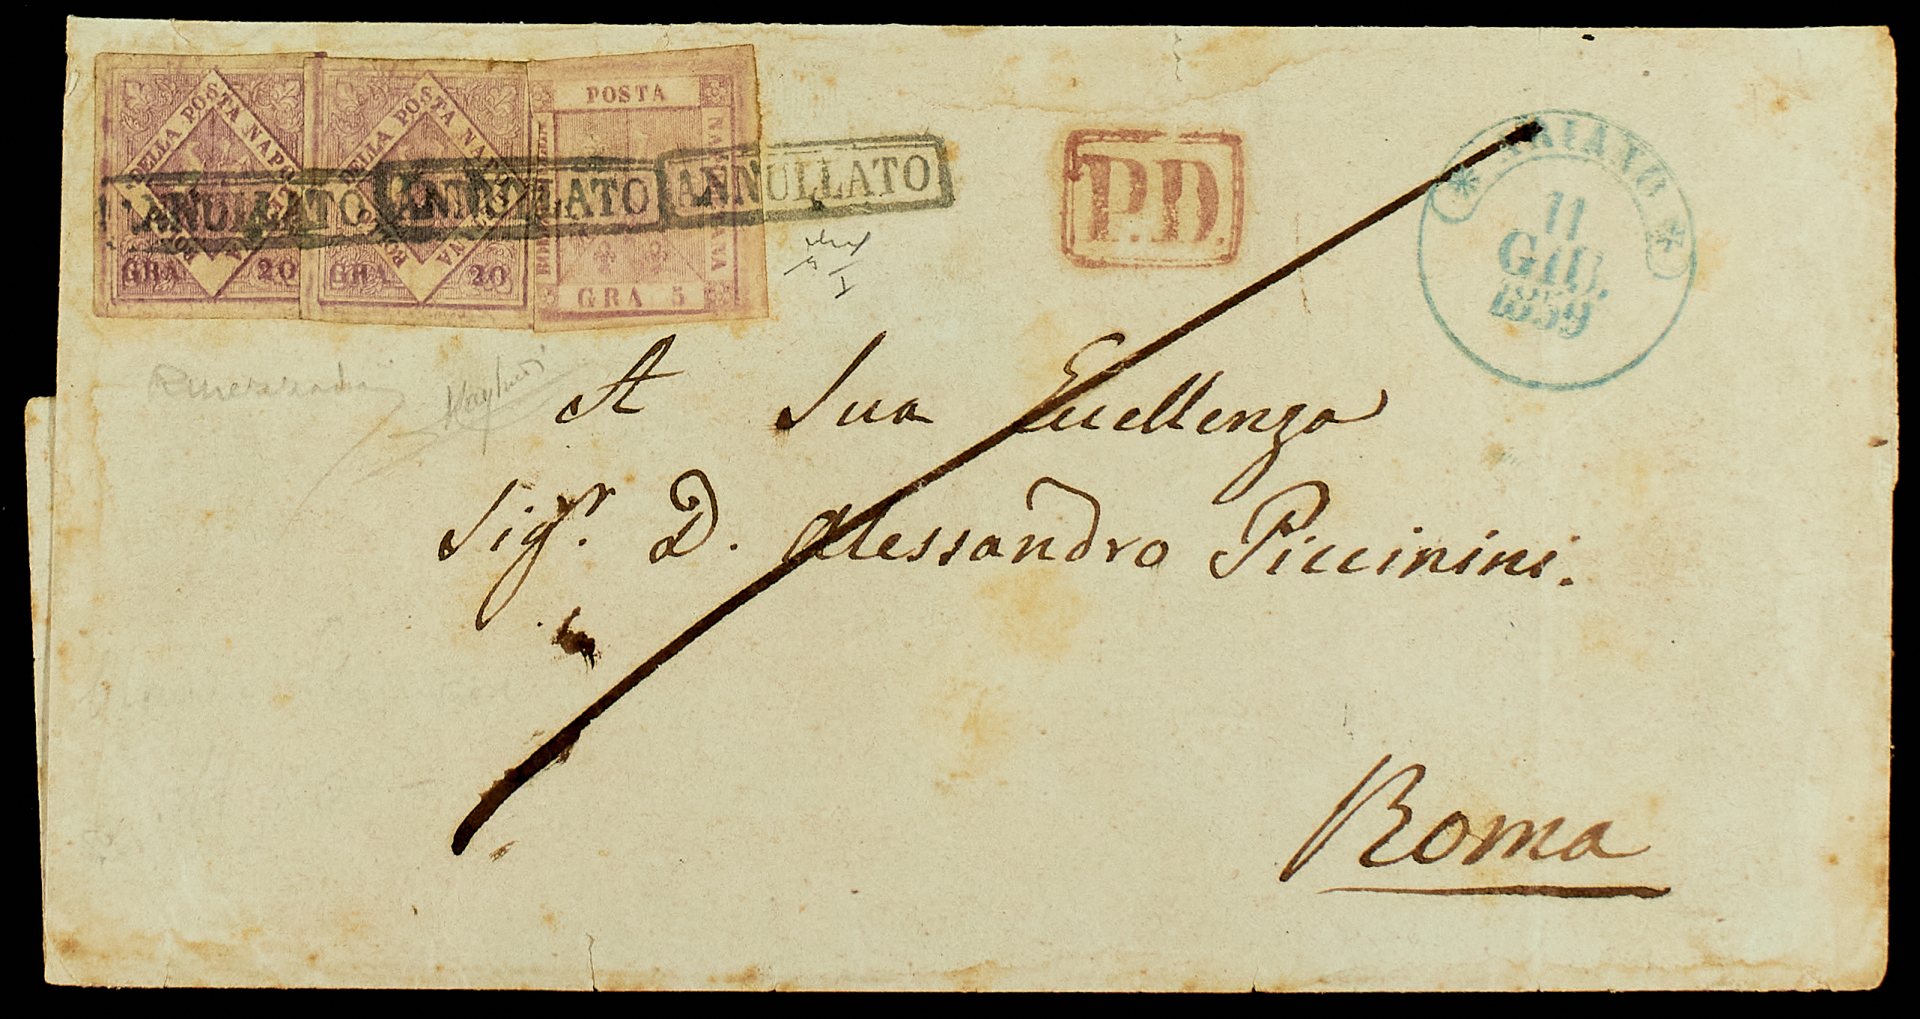 BOLLO DELLA POSTA NAPOLETANA
GRA 20
BOLLO DELLA POSTA NAPOLETANA
GRA 20
POSTA
NAPOLETANA
GRA 5
ANNULLATO
ANNULLATO
ANNULLATO
P.D.
11
GIU.
1859
A Sua Eccellenza
Sigr. D. Alessandro Piccinini.
Roma